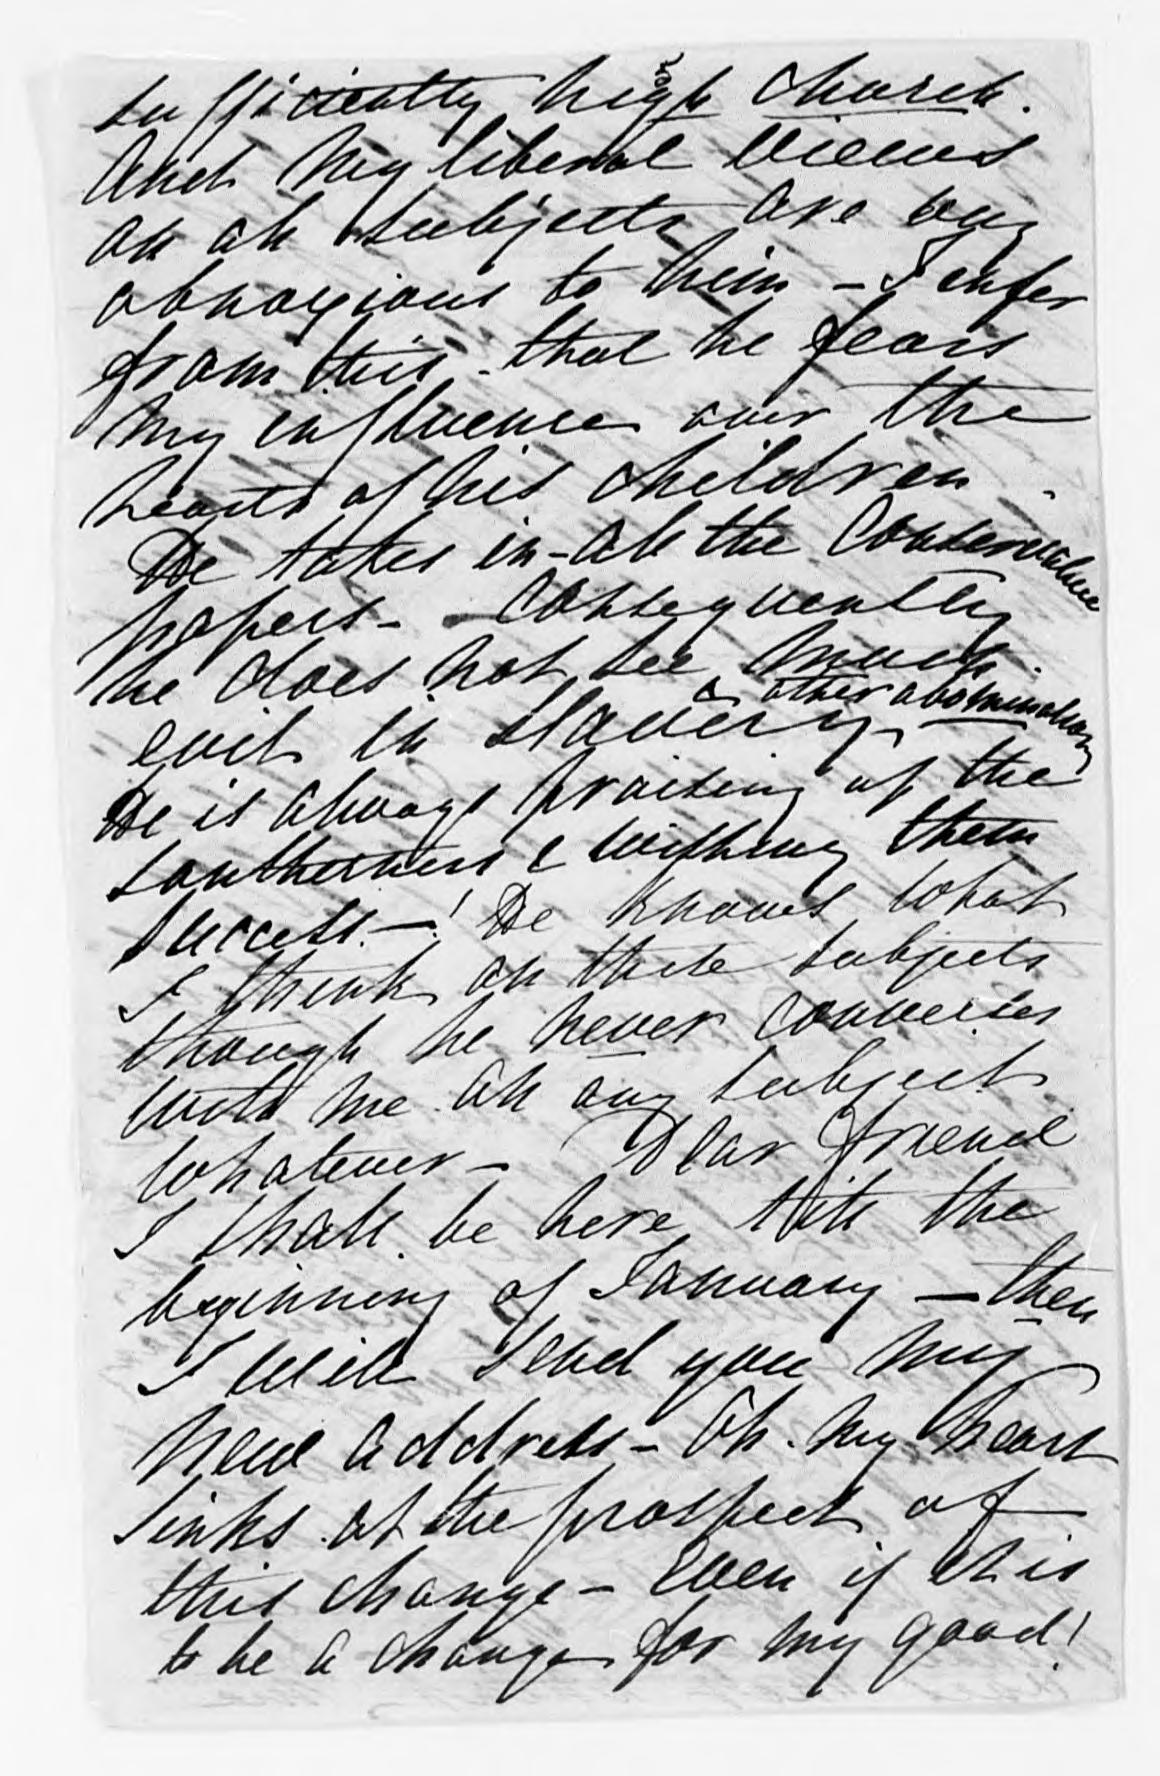 sufficiently high church.
And my liberal views
on all subjects are very
obnoxious to him – I infer
from this that he fears
my influence over the
hearts of his children.
He takes in all the Conservative
papers – Consequently
he does not see much
evil in slavery & other abominations
He is always praising up the
southerners & wishing them
success – ! He knows what
I think on these subjects
though he never converses
with me on any subject
whatever – Dear friend
I shall be here till the
beginning of January – then
I will send you my
new address – Oh my heart
sinks at the prospect of
this change – Even if it is
to be a change for my good!